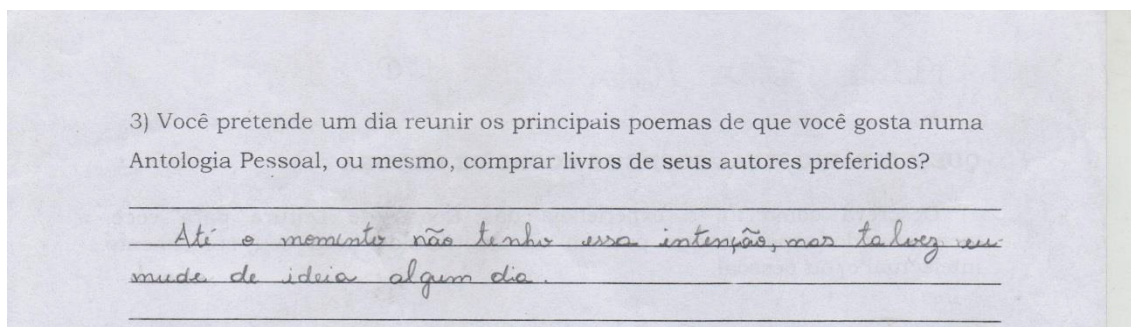 3) Você pretende um dia reunir os principais poemas de que você gosta numa
Antologia Pessoal, ou mesmo, comprar livros de seus autores preferidos?
Até o momento não tenho essa intenção, mas talvez eu
mude de ideia algum dia.